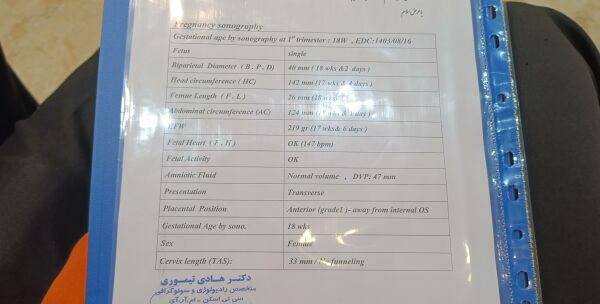 با عرض سلام
Pregnancy sonography
Gestational age by sonography at 1st trimester : 18W , EDC:1403/08/16
Fetus single
Biparietal Diameter ( B . P . D) 40 mm ( 18 wks &2 days )
Head circumference ( HC) 142 mm (17 wks & 4 days )
Femur Length ( F . L) 26 mm (18 wks
Abdominal circumference (AC) 124 mm
EFW 219 gr (17 wks& 6 days )
Fetal Heart ( F . H ) OK (147 bpm)
Fetal Activity OK
Amniotic Fluid Normal volume , DVP: 47 mm
Presentation Transverse
Placental Position Anterior (grade1 )- away from internal OS
Gestational Age by sono. 18 wks
Sex Female
Cervix length (TAS): 33 mm / No funneling
دکتر هادی تیموری
متخصص رادیولوژی و سونوگرافی
سی تی اسکن - ام.آر.آی